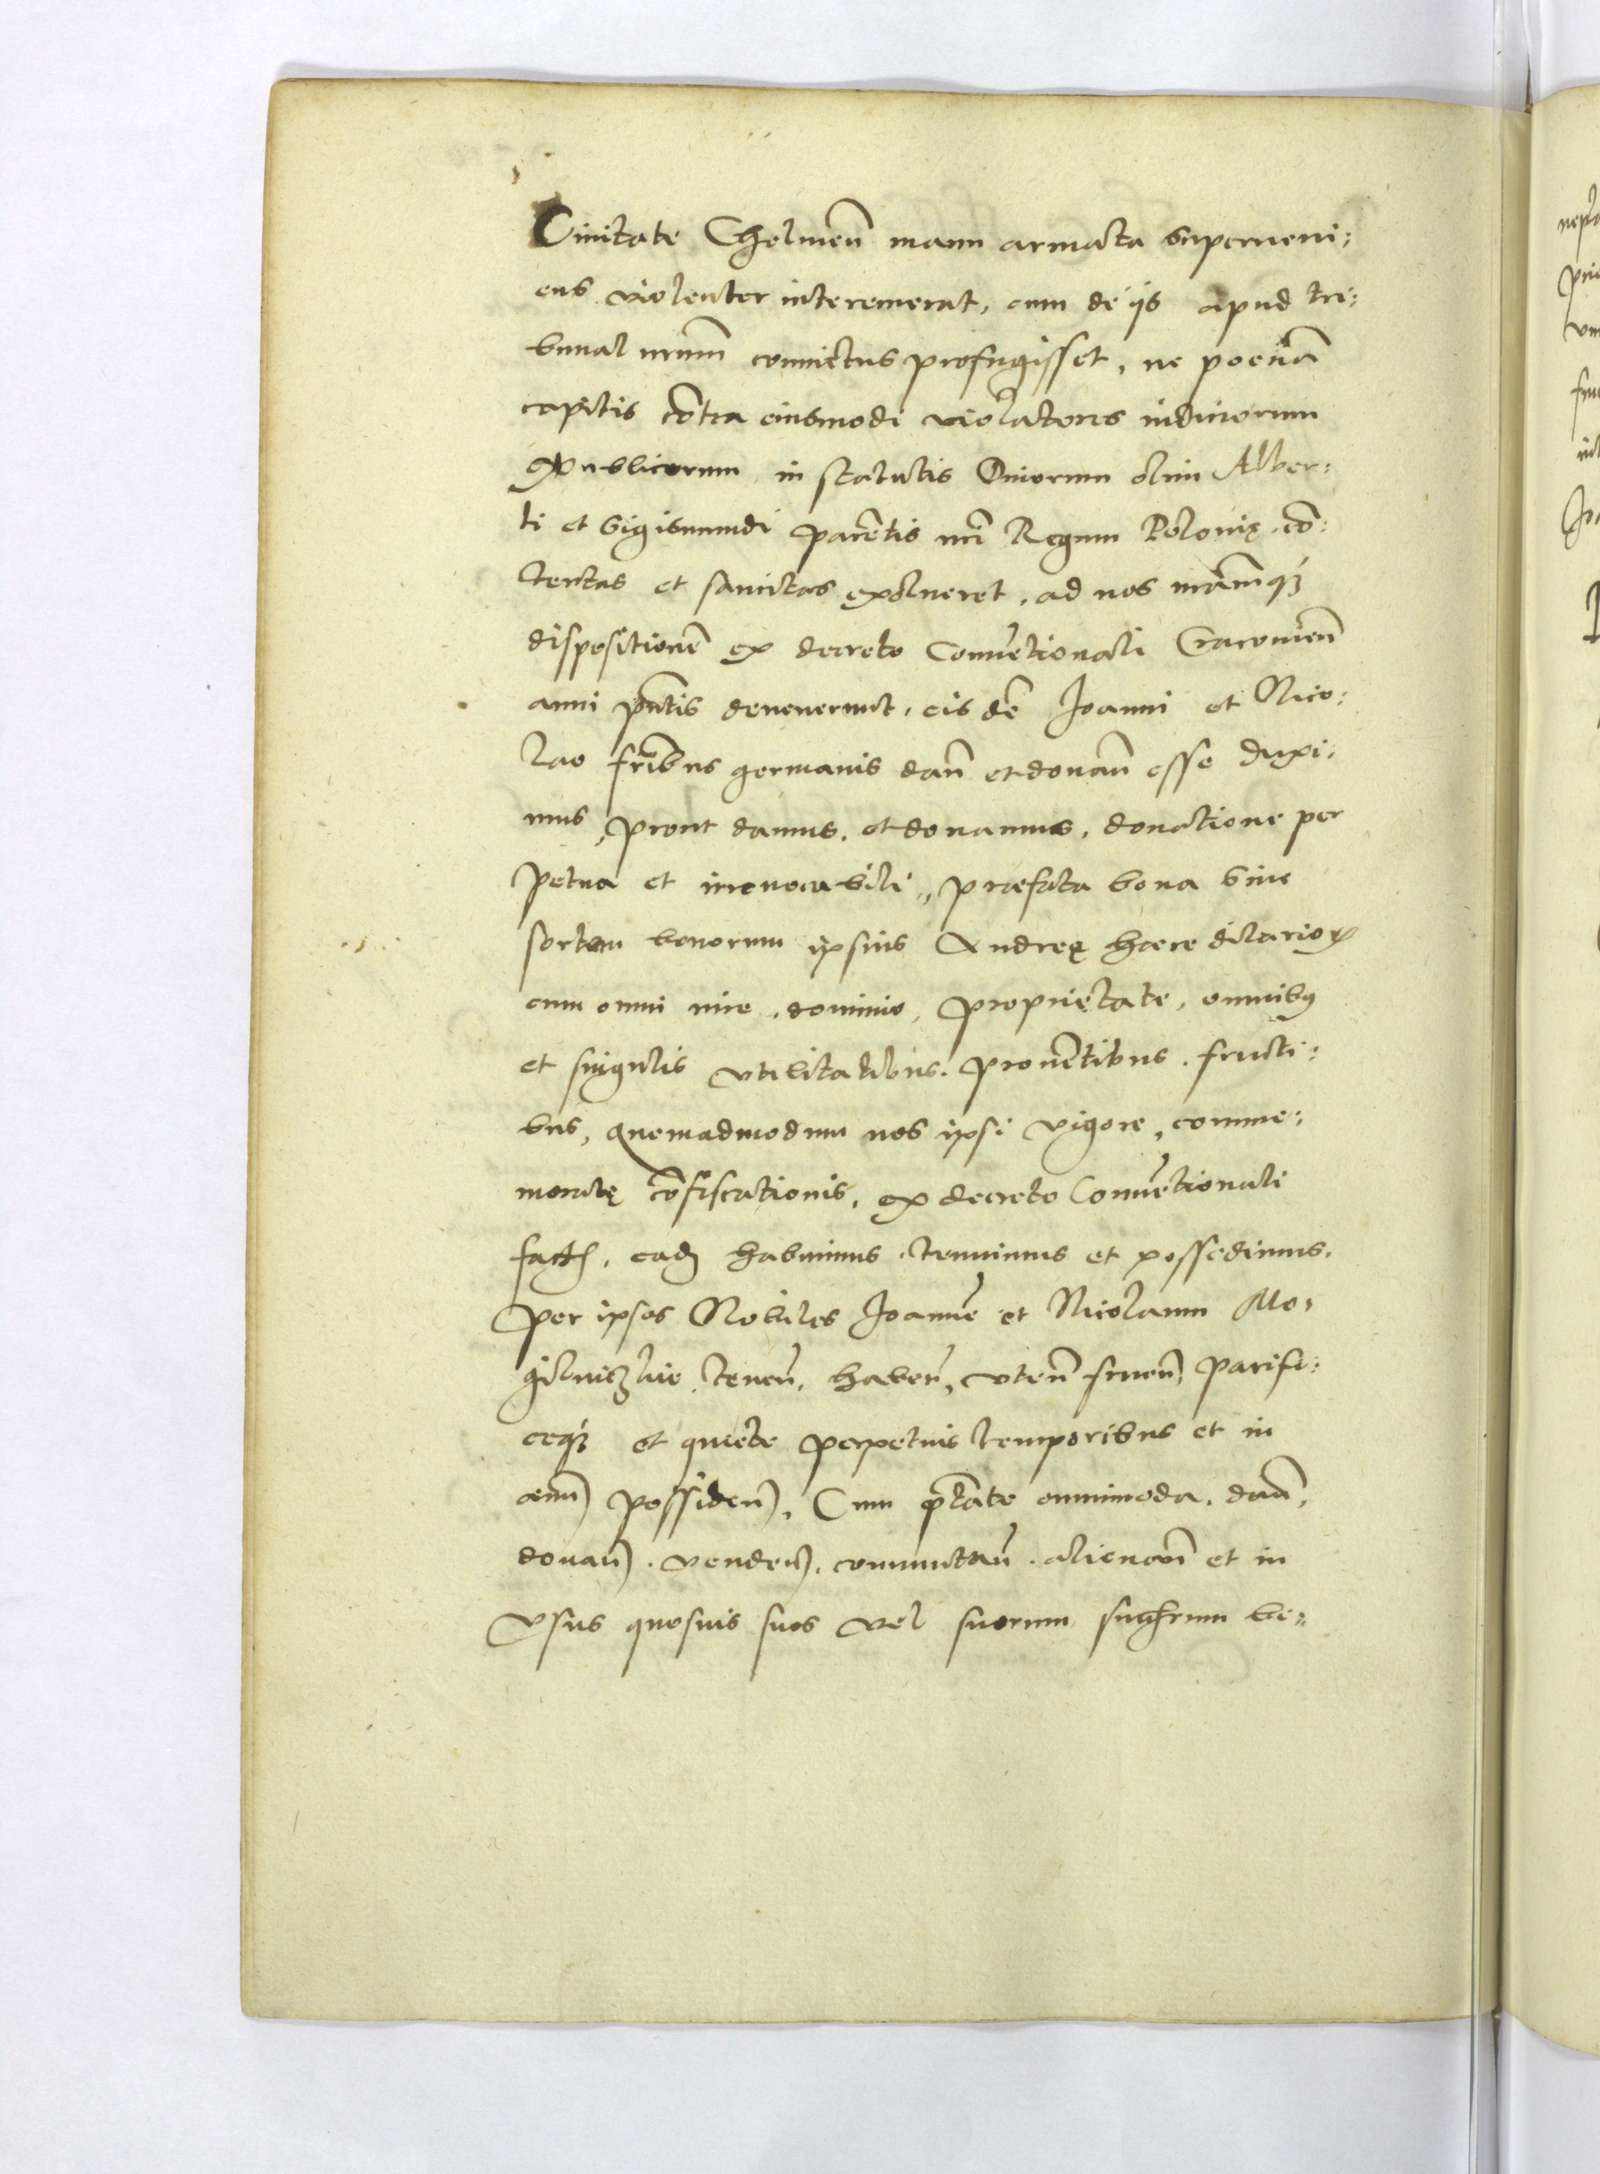 Civitate Chelmeñ manu armata superveni:
ens violenter interemerat, cum de ijs apud tri:
bunal nrum̃ convictus profugisset, ne poenã
capitis cõtra eiusmodi violatores iudiciorum
publicorum in statutis Divorum olim Alber:
ti et Sigismundi parẽtis nri̇̃ Regum Polonię cõ:
tentas et sancitas exolveret, ad nos nramq̃ʒ
dispositionẽ ex decreto Conuẽtionali Cracovieñ
anni pñtis devenerunt, eisdẽ Joanni et Nico:
lao frĩbus germanis dañ et donañ esse duxi:
mus, prout damus, et donamus, donatione per
petua et irrevocabili, praefata bona sive
sortem bonorum ipsius Andreę haereditarior̃
cum omni iure, dominio, proprietate, omnibꝰ
et singulis vtilitatibus, provẽtibus, fructi:
bus, quemadmodum nos ipsi vigore, comme:
moratę cõfiscationis, ex decreto Conuẽtionali
factę, eadẽ habuimus, tenuimus et possedimus.
Per ipsos Nobiles Joannẽ et Nicolaum Mo:
gilniczkie teneñ, habeñ, vteñ frueñ, pacifi:
ceqʒ et quiete perpetuis temporibus et in
aevũ possideñ, Cum ptãte omnimoda, dañ,
donañ, vendeñ, commutañ, alienañ et in
Vsus quosuis suos vel suorum succrum be: